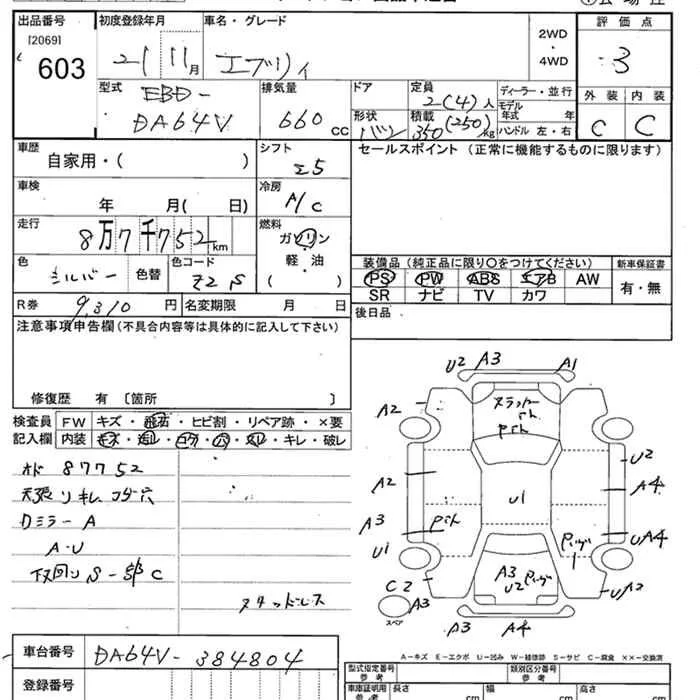 出品番号 初度登録年月 車名・グレード 評価点
[2069]
603 21 11月 エブリィ 2WD ・ 4WD 3
型式 排気量 ドア 定員 ディーラー・並行 外装 内装
EBD-
DA64V 660 cc 形状 バン 2(4)人 積載 350(250)kg モデル年式 年 ハンドル 左・右 C C
車歴 自家用・( ) シフト セールスポイント (正常に機能するものに限ります)
I5
車検 年 月( 日) 冷房 A/C
走行 8万7千752km 燃料 ガソリン
軽・油
( )
色 シルバー 色替 色コード Z2S
装備品 (純正品に限り○をつけてください) 新車保証書
PS PW ABS エアB AW 有・無
SR ナビ TV カワ
R券 9,310円 名変期限 月 日 後日品
注意事項申告欄(不具合内容等は具体的に記入して下さい)
修復歴 有 [箇所 ]
検査員 FW キズ・飛石・ヒビ割・リペア跡・×要
記入欄 内装 キズ・ヨゴレ・コゲ・穴・スレ・キレ・破レ
オド 87752
天張リキレ コゲ穴
Rミラー A
A・U
下回リ S-部C
スタッドレス
U2 A3 A1
A2
U2
A2 A4
U1
A3 UA4
U1
A3
U2
C2 UA2
A3
スペア
A3 A4
A-キズ E-エクボ U-凹み W-補修跡 S-サビ C-腐食 ××-交換済
車台番号 DA64V-384804
登録番号
型式指定番号 参考 類別区分番号 参考
車庫証明用 参考 長さ cm 幅 cm 高さ cm